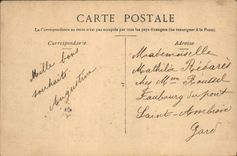 CARTE POSTALE
La Correspondance au recto n'est pas acceptée par tous les pays étrangers (Se renseigner à la Poste)
Correspondance
Adresse
Mille bons
souhaits
Augustine
Mademoiselle
Mathilde
chez Mme Roussel
Faubourg du pont
Saint-Ambroix
Gard